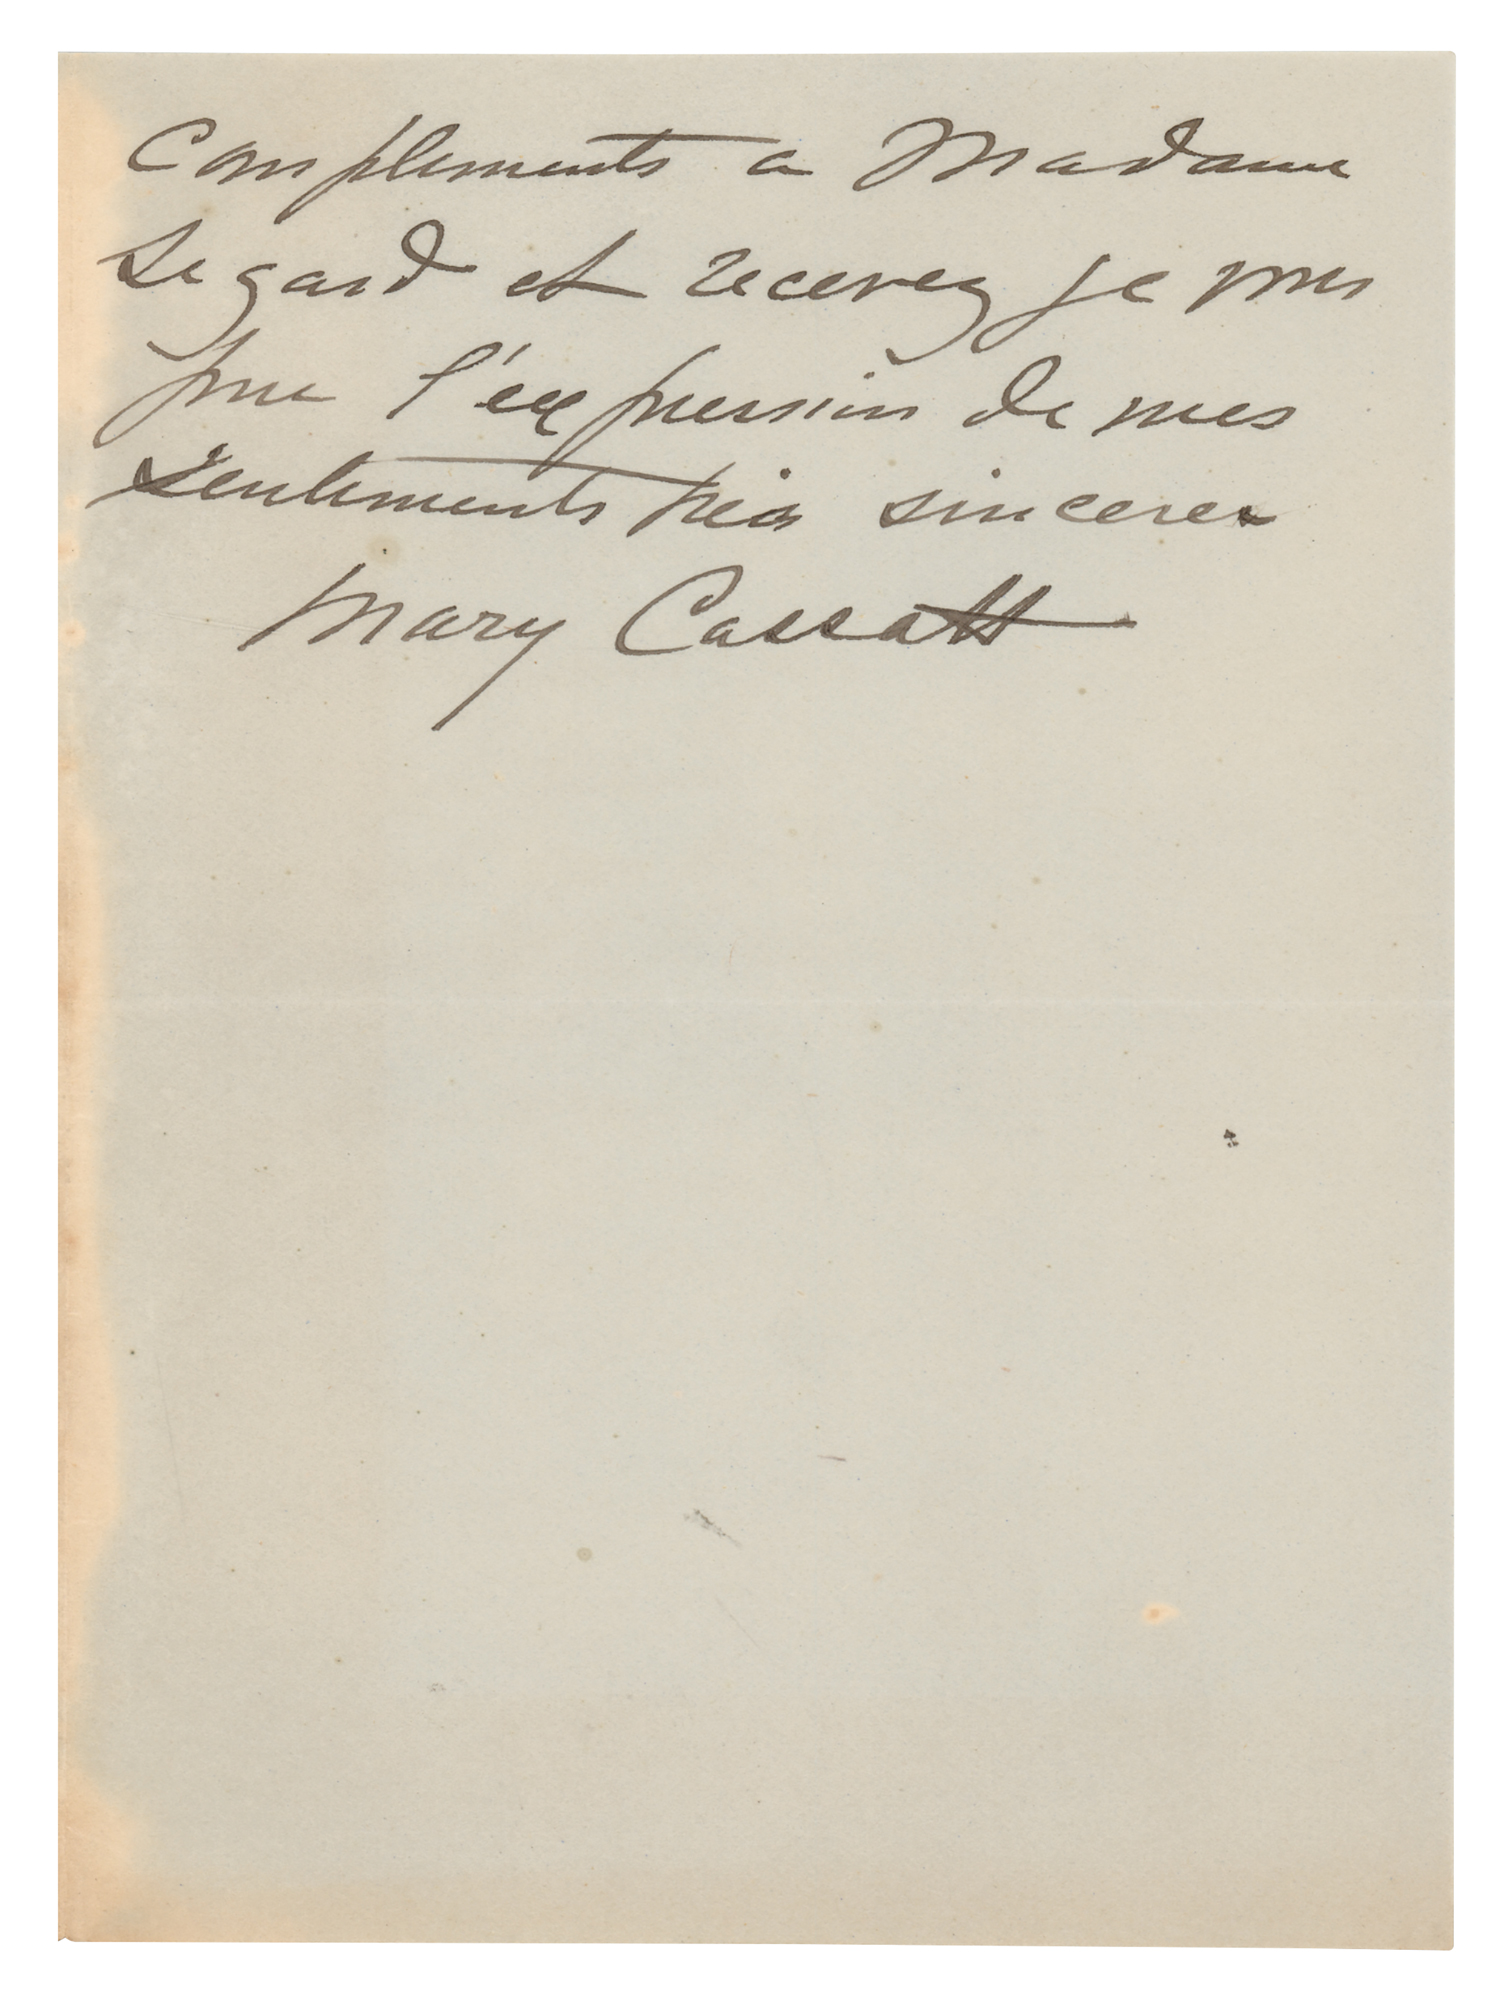 Compliments a Madame
Segard et recevez je vous
prie l'expression de mes
sentiments très sinceres
Mary Cassatt